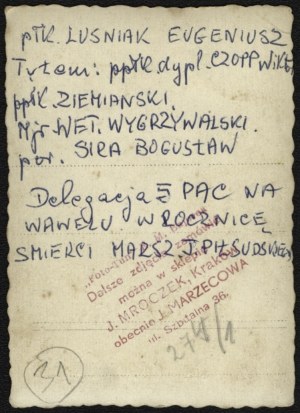 płk. LUSNIAK EUGENIUSZ
Tyłem: ppłk. dypl. CZOPP Wikt
ppłk. ZIEMIAŃSKI.
Mjr. WET. WYGRZYWALSKI.
por. SIRA BOGUSŁAW
Delegacja 5 PAC NA
WAWELU W ROCZNICĘ
SMIERCI MARSZ. J. PIŁSUDSKIEGO
Dalsze zdjęcia zamówić
można w sklepie
J. MROCZEK, Kraków
obecnie J. MARZECOWA
ul. Szpitalna 36.
274/1
31